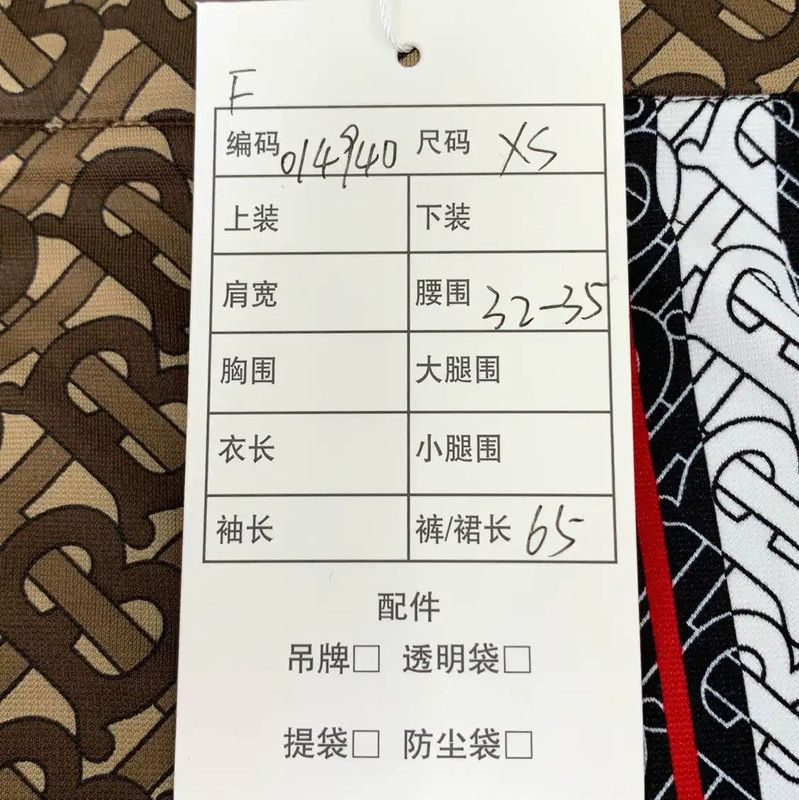 F
编码 014940 尺码 XS
上装 下装
肩宽 腰围 32-35
胸围 大腿围
衣长 小腿围
袖长 裤/裙长 65
配件
吊牌□ 透明袋□
提袋□ 防尘袋□